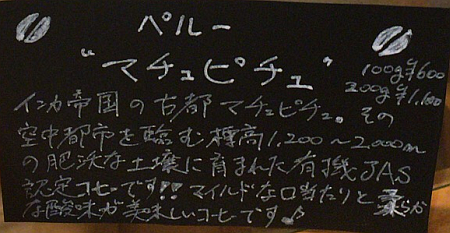 ペルー
"マチュピチュ"
100g ¥600
200g ¥1,100
インカ帝国の古都マチュピチュ。その
空中都市を臨む標高1,200〜2,000m
の肥沃な土壌に育まれた有機JAS
認定コーヒーです!! マイルドな口当たりと柔らか
な酸味が美味しいコーヒーです♪